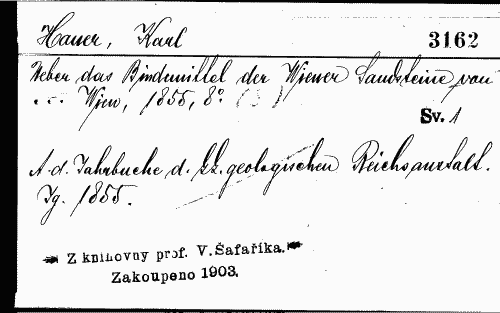 Hauer, Karl
3162
Ueber das Bindemittel der Wiener Sandsteine von
... Wien, 1855, 8º (3)
Sv. 1
A. d. Jahrbuche d. k.k. geologischen Reichsanstalt.
Jg. 1855.
Z knihovny prof. V. Šafaříka.
Zakoupeno 1903.